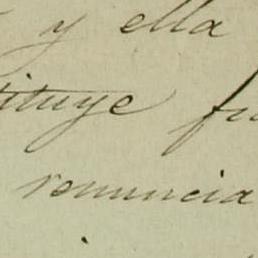 y ella
tituye fu
renuncia